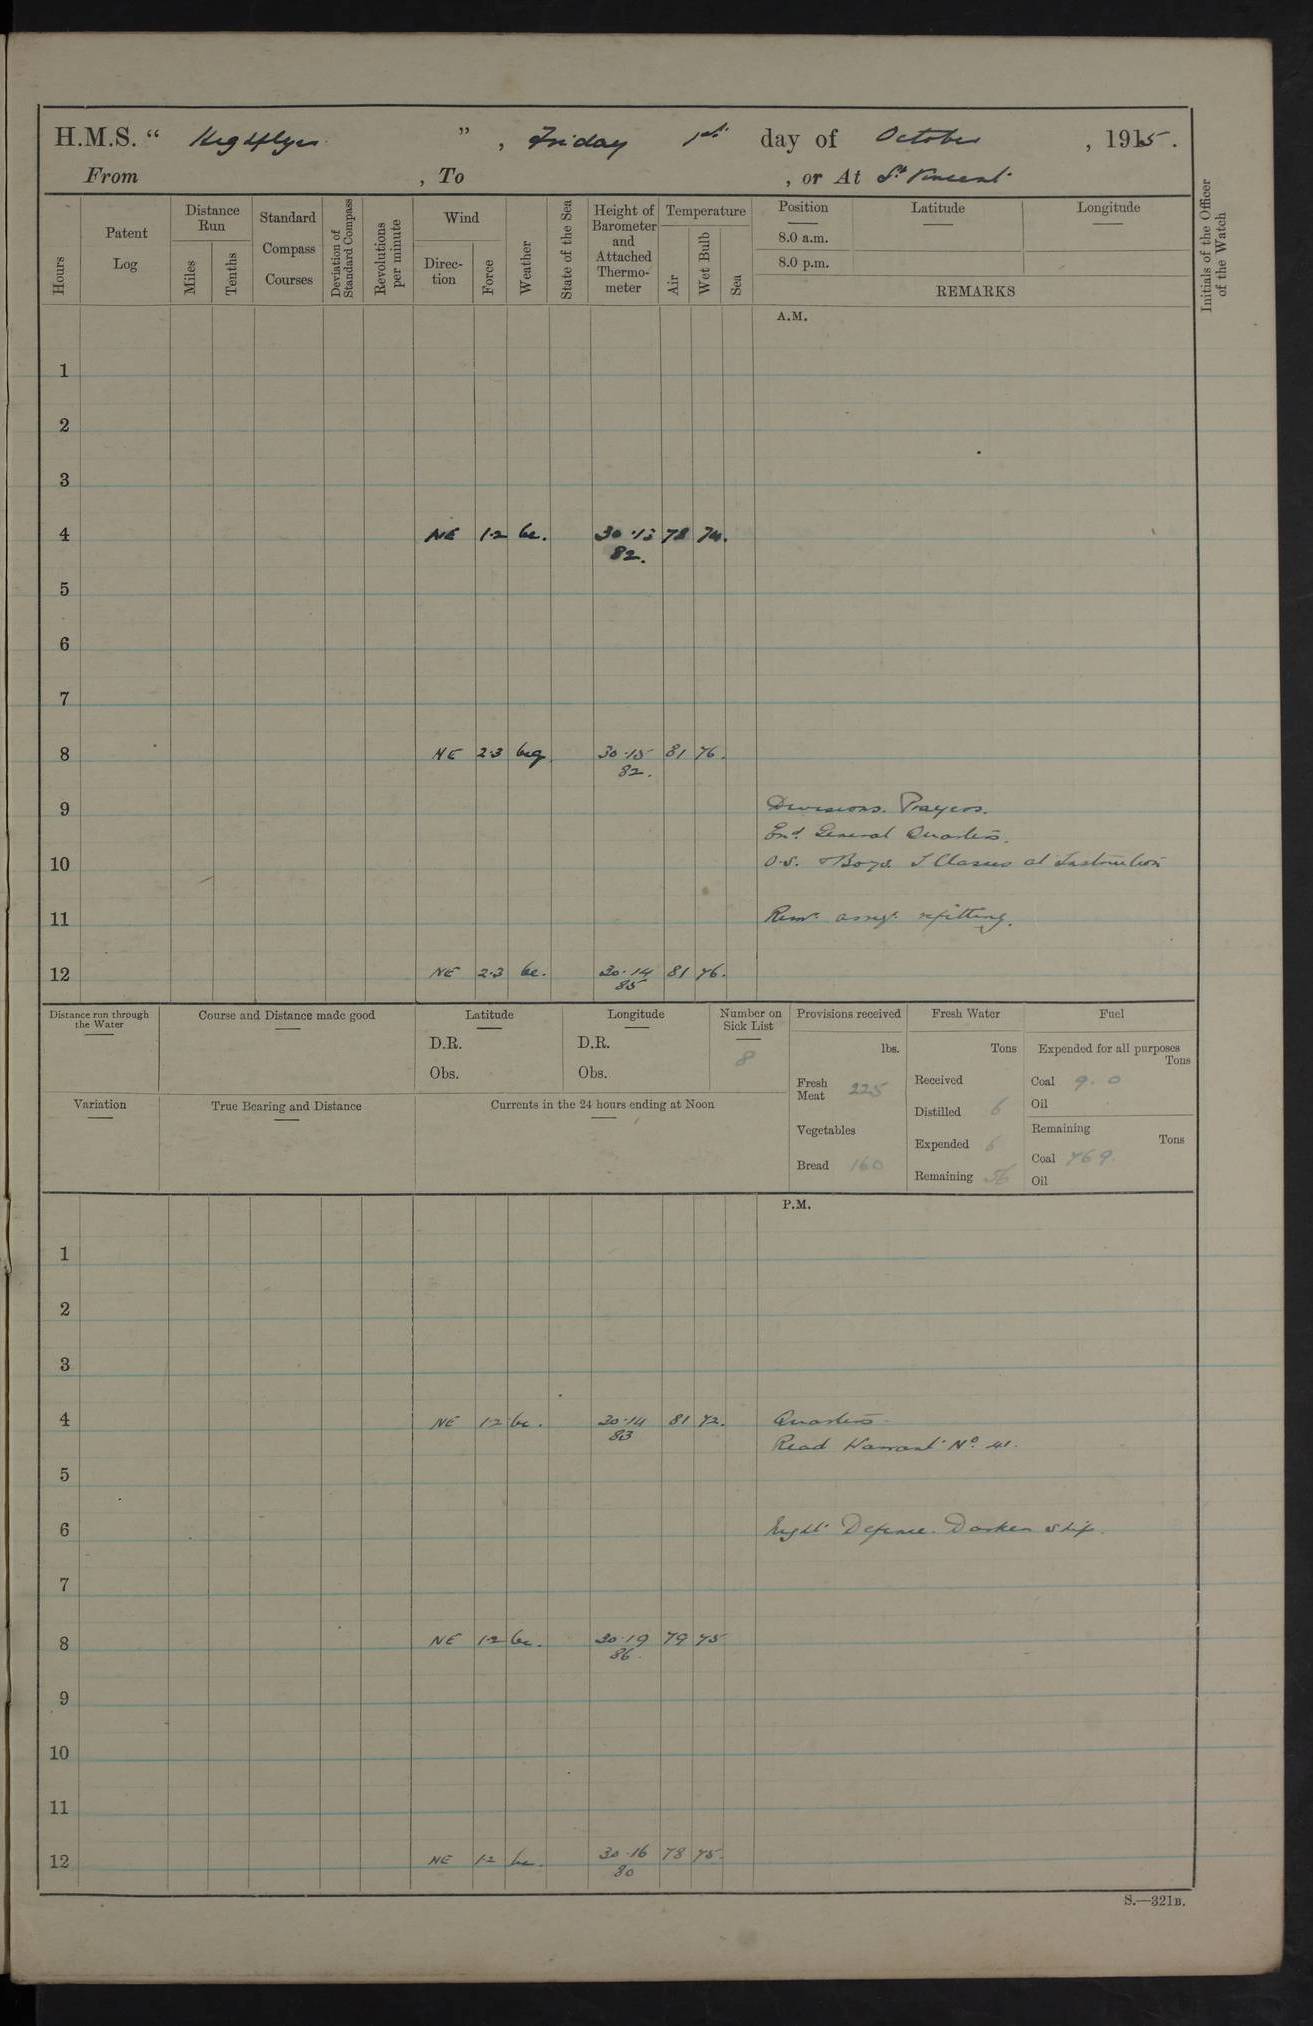 H.M.S. “ Highflyer ” , Friday 1st day of October , 1915.
From , To , or At St Vincent
Hours
Patent Log
Distance Run
Miles
Tenths
Standard Compass Courses
Deviation of Standard Compass
Revolutions per minute
Wind
Direc-tion
Force
Weather
State of the Sea
Height of Barometer and Attached Thermo-meter
Temperature
Air
Wet Bulb
Sea
Position
8.0 a.m.
8.0 p.m.
Latitude
Longitude
REMARKS
Initials of the Officer of the Watch
A.M.
1
2
3
4 NE 1·2 bc. 30·13 78 74.
82.
5
6
7
8 NE 2·3 bcq 30·15 81 76.
82.
9 Divisions. Prayers.
General Quarters.
10 O.S. & Boys T Classes at Instruction
11 refitting.
12 NE 2·3 bc. 30·14 81 76.
85
Distance run through the Water
Course and Distance made good
Latitude
D.R.
Obs.
Longitude
D.R.
Obs.
Number on Sick List
8
Variation
True Bearing and Distance
Currents in the 24 hours ending at Noon
Provisions received
lbs.
Fresh Meat 225
Vegetables
Bread 160
Fresh Water
Tons
Received
Distilled 6
Expended 6
Remaining 56
Fuel
Expended for all purposes
Tons
Coal 9.0
Oil
Remaining
Tons
Coal 769.
Oil
P.M.
1
2
3
4 NE 1·2 bc. 30·14 81 72. Quarters.
83 Read Warrant No. 41.
5
6 Night Defence. Darken ship.
7
8 NE 1·2 bc. 30·19 79 75
86.
9
10
11
12 NE 1·2 bc. 30·16 78 75.
80
S.—321B.